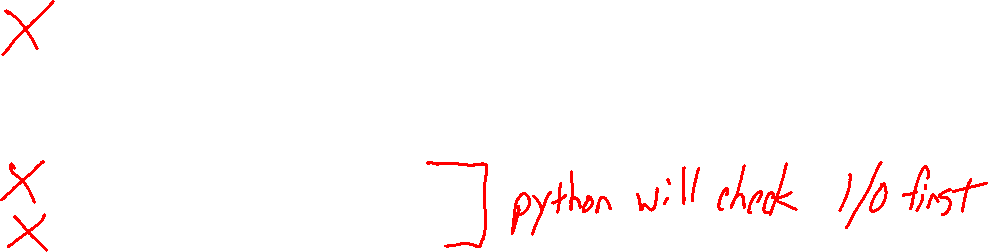 X
X
python will check 1/0 first
X